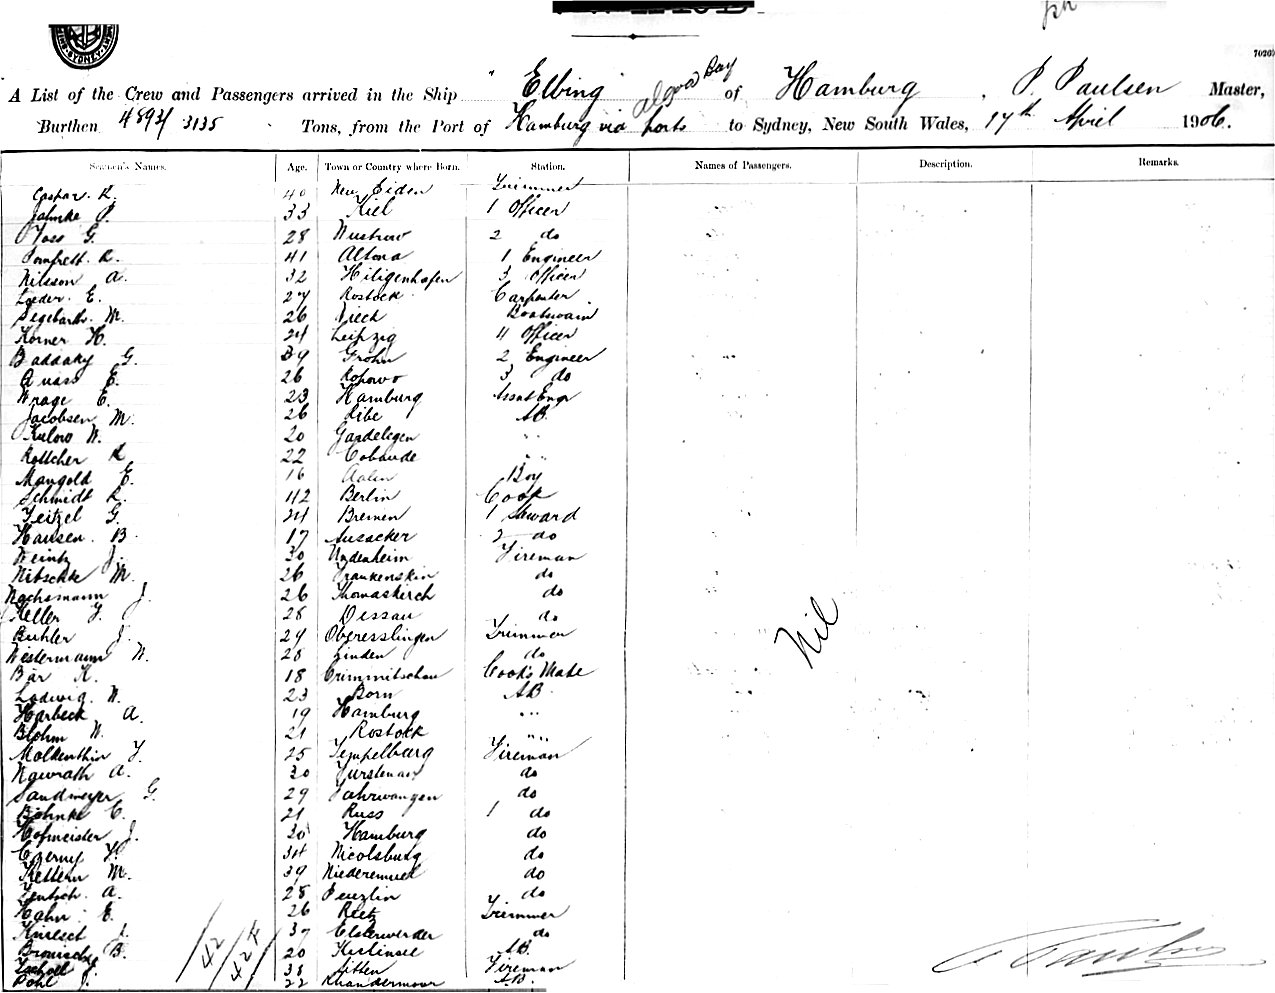 70269
A List of the Crew and Passengers arrived in the Ship "Elbing" of Hamburg, P. Paulsen Master,
Algoa Bay
Burthen 4893/3135 Tons, from the Port of Hamburg via ports to Sydney, New South Wales, 17th April 1906.
Seamen's Names. Age. Town or Country where Born. Station. Names of Passengers. Description. Remarks.
Caspar. K. 40 Neu Eiden Trimmer
Jahnke P. 33 Kiel 1 Officer
Voss G. 28 Wustrow 2 do
Pomfrett. R. 41 Altona 1 Engineer
Nilsson A. 32 Hiligenhafen 3 Officer
Loeder. E. 27 Rostock Carpenter
Segebarth. M. 26 Boatswain
Körner H. 24 Leipzig 4 Officer
Baddaky G. 39 Grohn 2 Engineer
Quass E. 26 Kopowo 3 do
Wrage E. 23 Hamburg Assnt Engr
Jacobsen M. 26 Ribe AB
Kulow W. 20 Gardelegen " "
Rottcher K 22 Cobaude " "
Mangold E. 16 Aalen Boy
Schmidt R. 42 Berlin Cook
Feitzel G. 24 Bremen 1 Steward
Hansen. B. 17 Ausacker 2 do
Weintz J. 30 Undenheim Fireman
Nitschke M. 26 Frankenstein do
Nachsmann J. 26 Thomaskirch do
Keller F. 28 Dessau do
Buhler J. 29 Oberesslingen Trimmer
Westermann W. 28 Linden do
Bär K. 18 Crimmitschau Cook's Mate
Ludwig. W. 23 Born AB
Harbeck A. 19 Hamburg " "
Blohm W. 21 Rostock " "
Molkenthin F. 25 Tempelburg Fireman
Nawrath A. 30 Furstenau do
Sandmeyer G. 29 Fahrwangen do
Böhnke E. 21 Russ 1 do
Hofmeister J. 30 Hamburg do
Czerny F. 34 Nicolsburg do
Kettern M. 39 Niederemmel do
Jentsch. A. 28 Penzlin do
Hahn. E. 26 Reetz Trimmer
J. 37 Elsterwerder do
B. 20 AB.
Tscholl J. 38 Fireman
Pohl J. 22 A.B.
Nil
42
42
P Paulsen